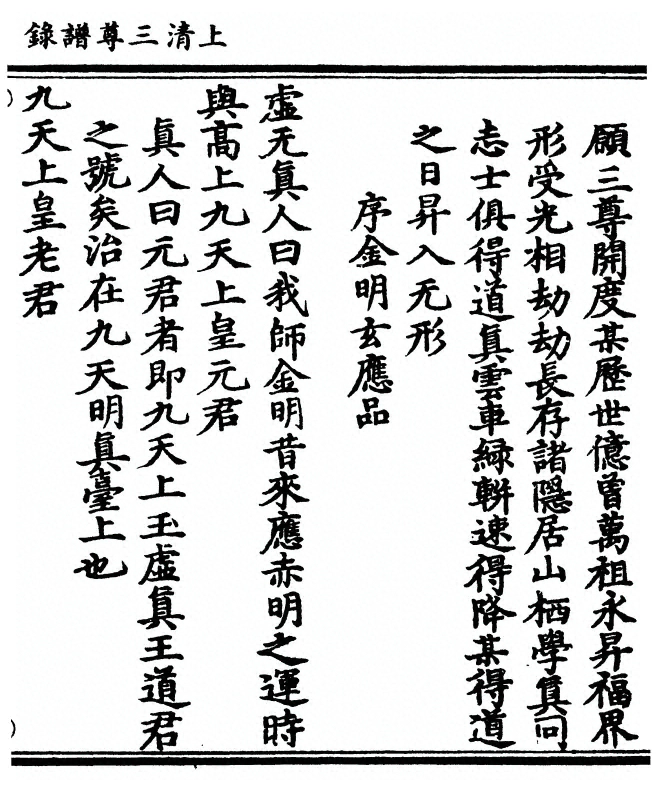 上清三尊譜錄
願三尊開度某歷世億曾萬祖永昇福界
形受光相劫劫長存諸隱居山栖學真同
志士俱得道真雲車綠軿速得降某得道
之日昇入无形
序金明玄應品
虛无真人曰我師金明昔來應赤明之運時
與高上九天上皇元君
真人曰元君者即九天上玉虛真王道君
之號矣治在九天明真臺上也
九天上皇老君